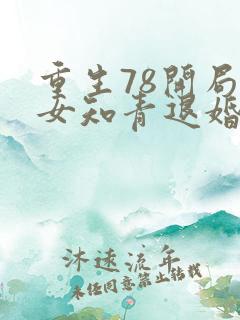 重生78开局
女知青退婚
沐速流年
未经同意禁止转载